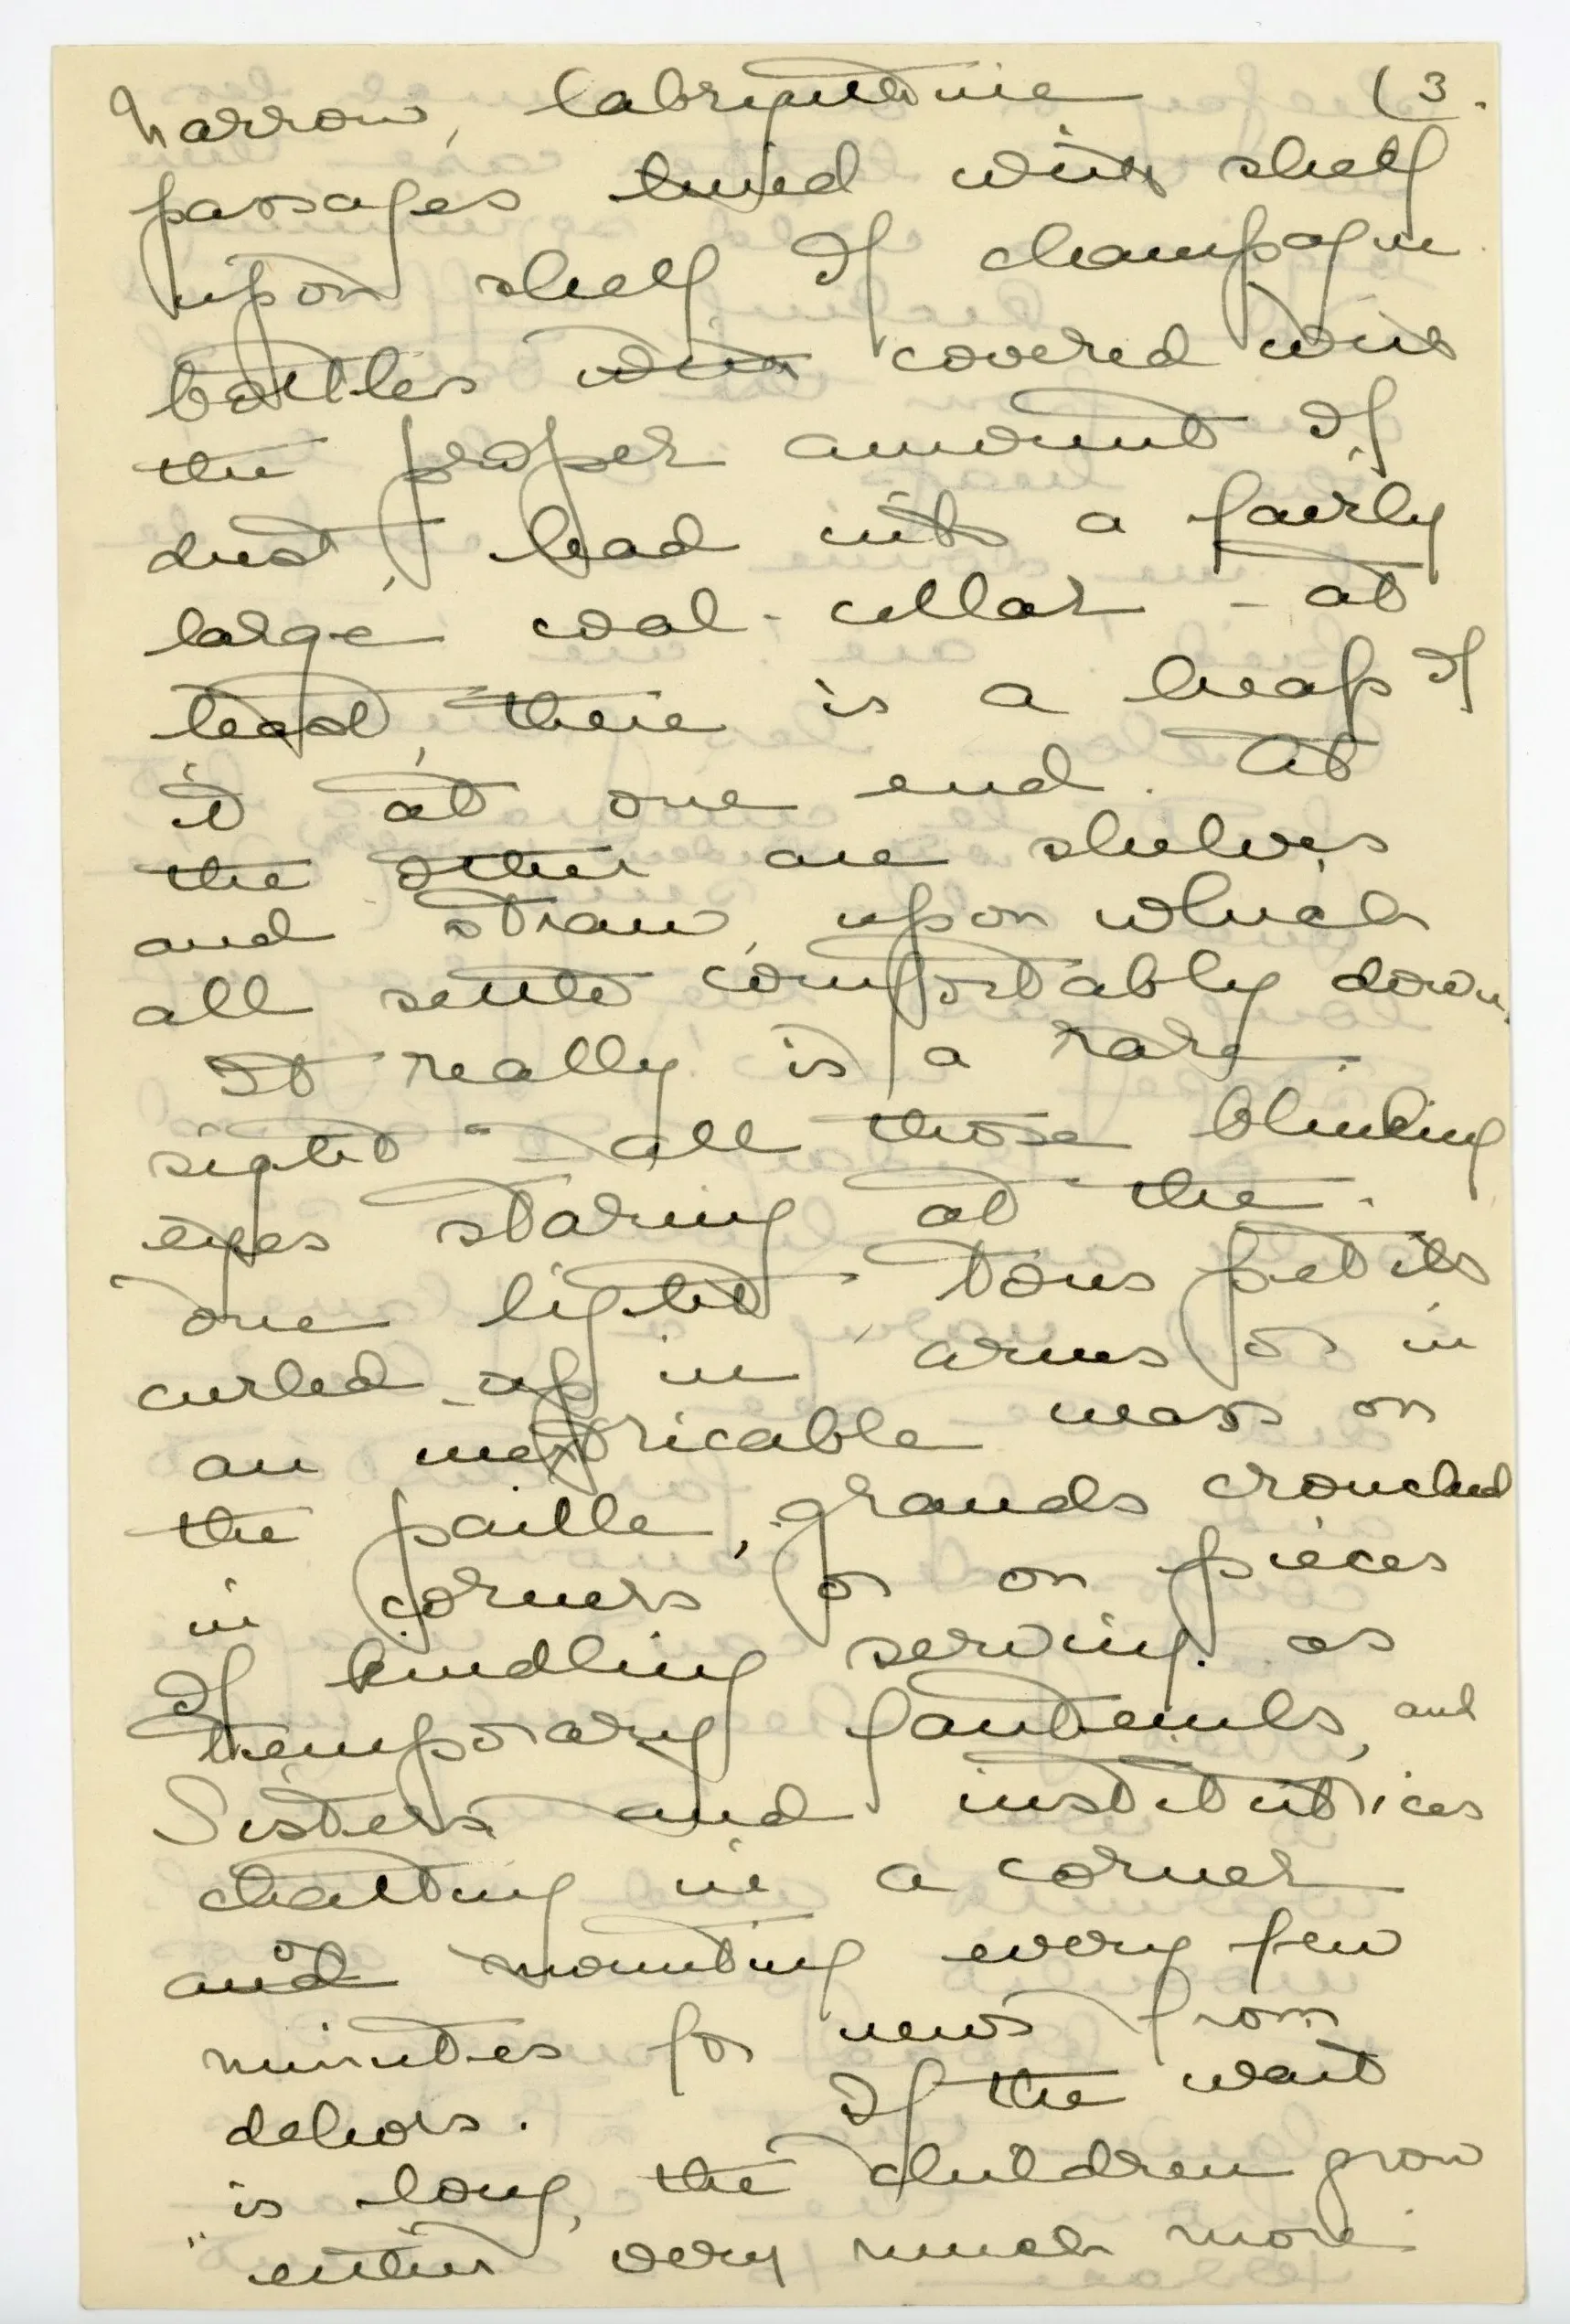 narrow, labryntine (3.
passages lined with shelf
upon shelf of champagne
bottles with covered with
the proper amount of
dust, lead into a fairly
large coal-cellar - at
least, there is a heap of
it at one end. At
the other are shelves
and straw, upon which
all settle comfortably down.
It really is a rare
sight - all those blinking
eyes staring at the
one light, tous petits
curled-up in arms or in
an inextricable mass on
the paille, grands crouched
in corners or on pieces
of kindling serving as
temporary fauteuils, and
Sisters and institutrices
chatting in a corner
and mounting every few
minutes for news from
dehors. If the wait
is long, the children grow
either very much more